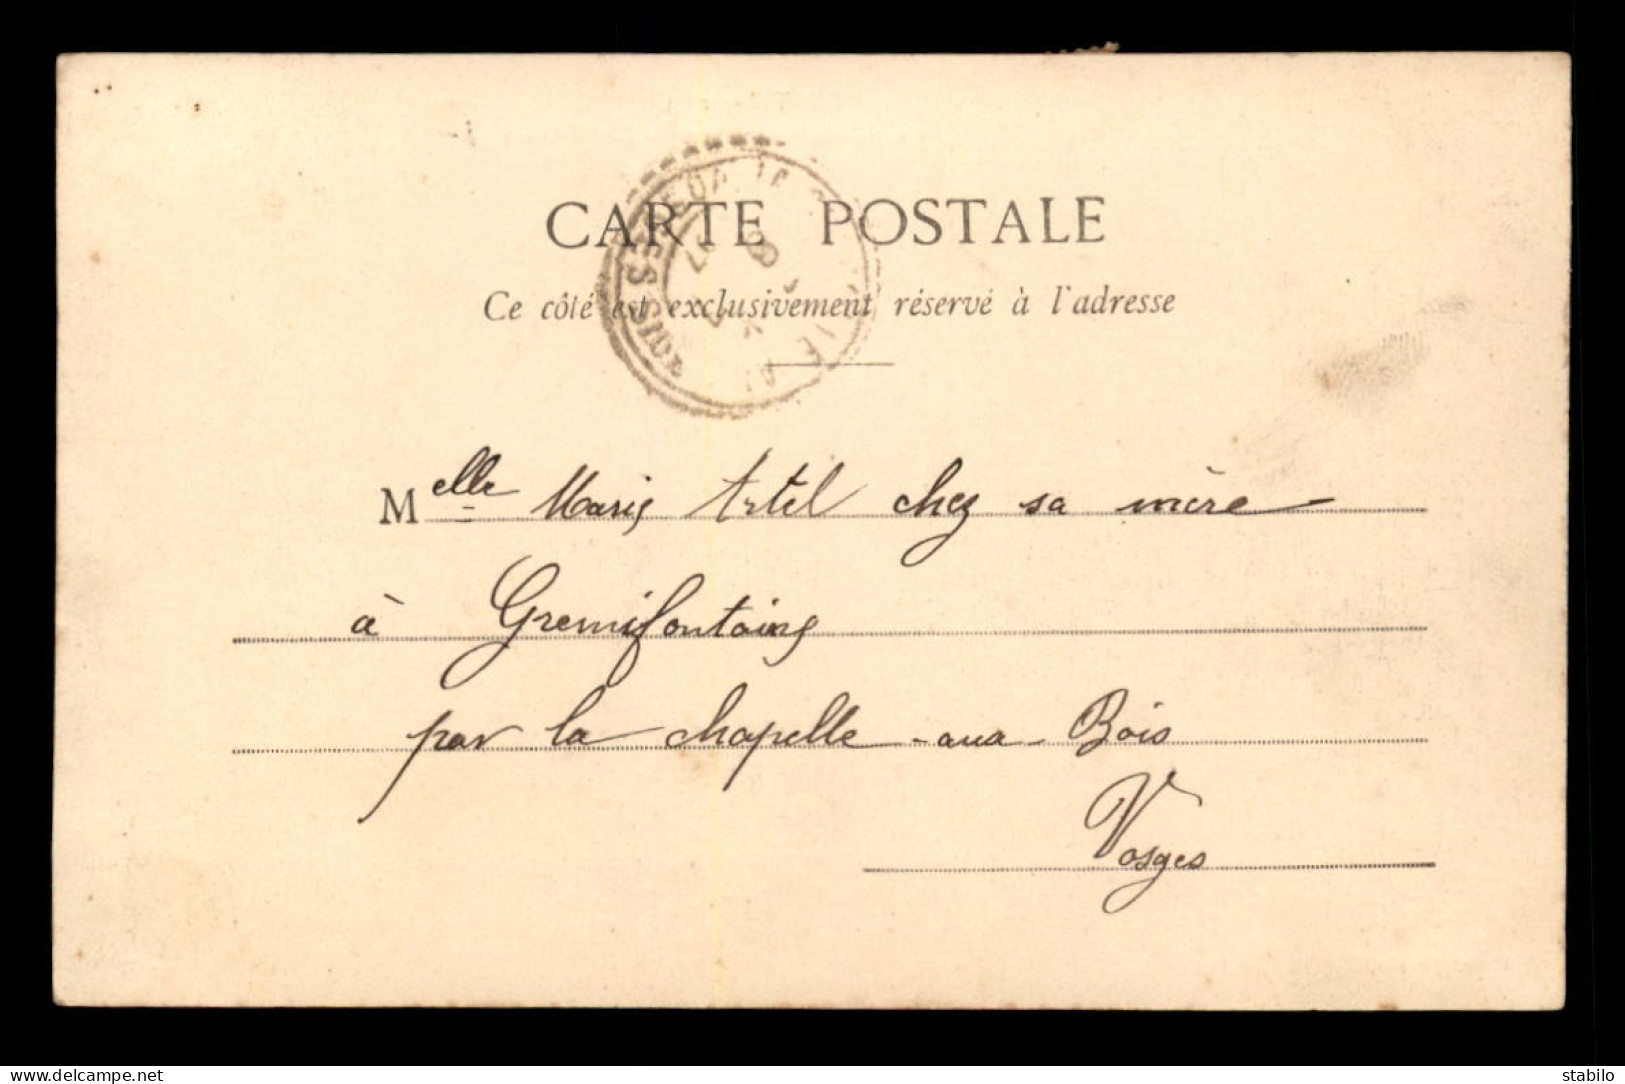 CARTE POSTALE
Ce côté est exclusivement réservé à l'adresse
Melle Marie Artel chez sa mère
à Gremifontaine
par la chapelle-aux-Bois
Vosges
www.delcampe.net
stabilo